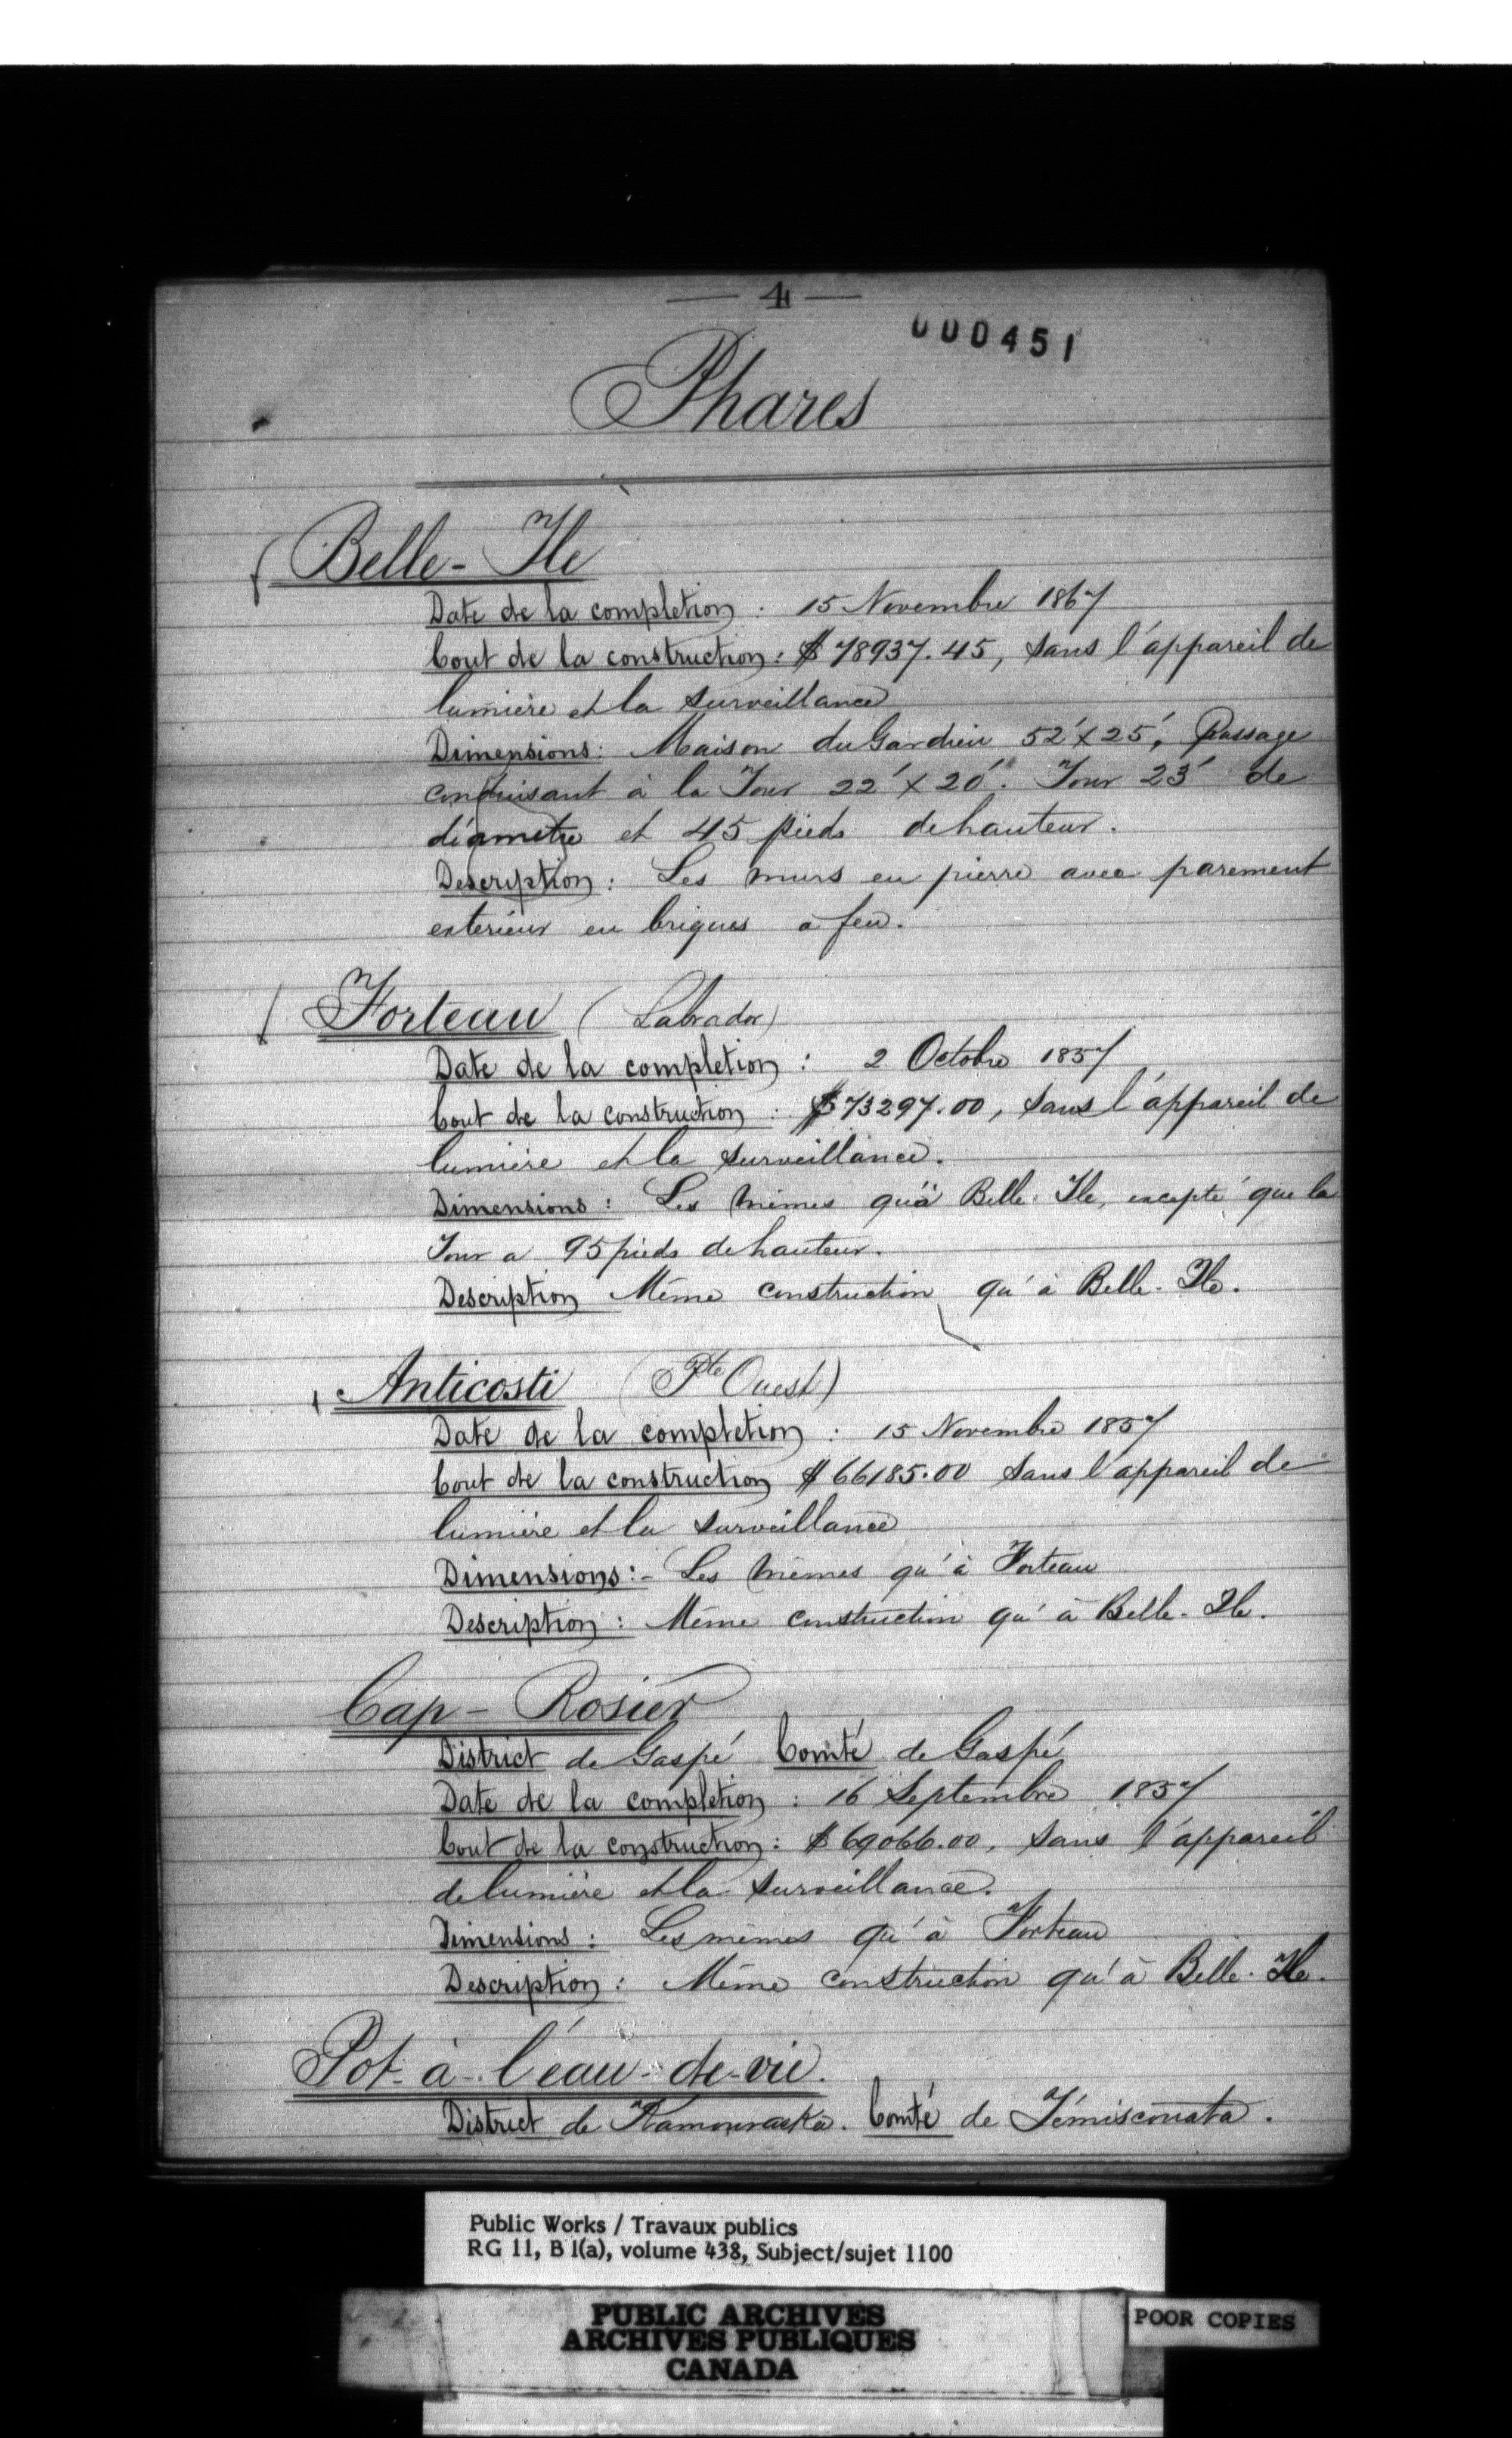 — 4 —
000451
Phares
Belle-Ile
Date de la completion : 15 Novembre 1867
Cout de la construction : $78937.45, sans l'appareil de
lumière et la surveillance
Dimensions : Maison du Gardien 52' x 25', Passage
conduisant à la Tour 22' x 20'. Tour 23' de
diametre et 45 pieds de hauteur.
Description : Les murs en pierre avec parement
exterieur en briques à feu.
Forteau (Labrador)
Date de la completion : 2 Octobre 1857
Cout de la construction : $73297.00, sans l'appareil de
lumière et la surveillance.
Dimensions : Les mêmes qu'à Belle-Ile, excepté que la
Tour a 95 pieds de hauteur.
Description Même construction qu'à Belle-Ile.
Anticosti (Pte Ouest)
Date de la completion : 15 Novembre 1857
Cout de la construction $66185.00 sans l'appareil de
lumière et la surveillance
Dimensions :- Les mêmes qu'à Forteau
Description : Même construction qu'à Belle-Ile.
Cap-Rosier
District de Gaspé Comté de Gaspé
Date de la completion : 16 Septembre 1857
Cout de la construction : $69066.00, sans l'appareil
de lumière et la surveillance.
Dimensions : Les mêmes qu'à Forteau
Description : Même construction qu'à Belle-Ile.
Pot-à-l'éau-de-vie.
District de Kamouraska. Comté de Témiscouata.
Public Works / Travaux publics
RG 11, B 1(a), volume 438, Subject/sujet 1100
PUBLIC ARCHIVES
ARCHIVES PUBLIQUES
CANADA
POOR COPIES